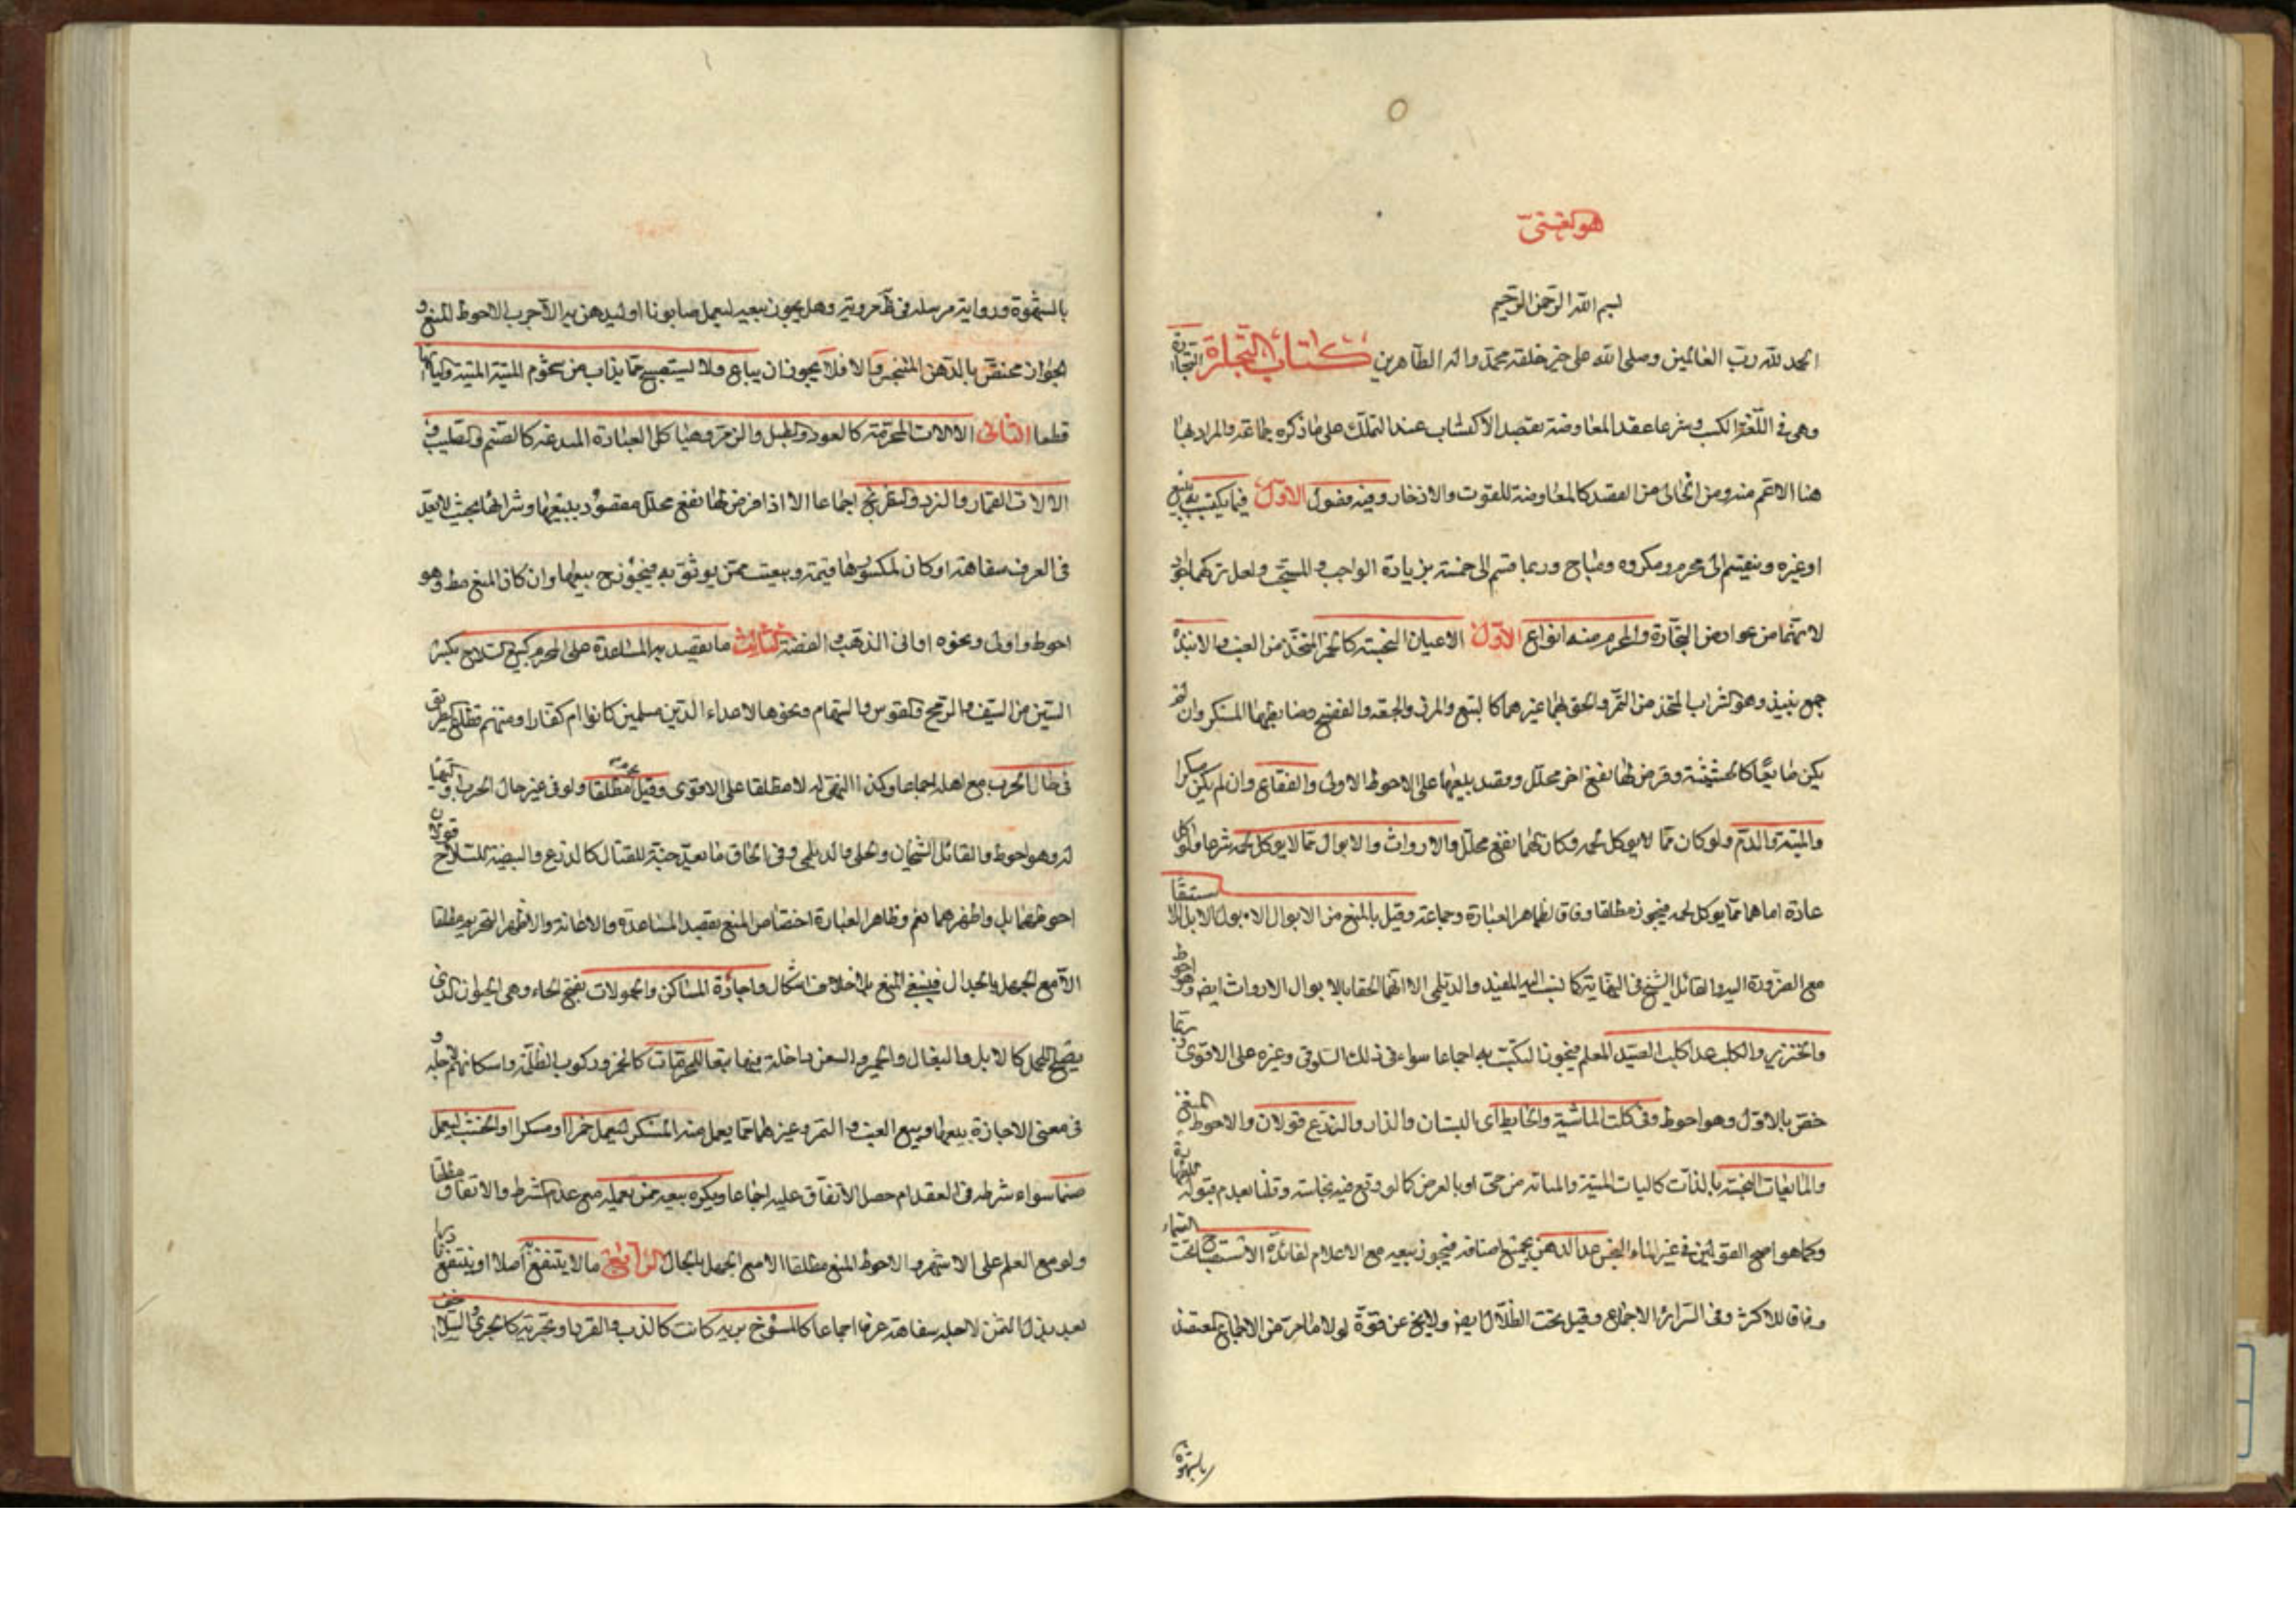 هو الغنی
بسم الله الرحمن الرحیم
الحمد لله رب العالمین وصلی الله علی خیر خلقه محمد واله الطاهرین کتاب التجارة التجارة
وهی فی اللغة الکسب وشرعا عقد المعاوضة بقصد الاکتساب عند التملک علی ما ذکره جماعة والمراد بها
هنا الاعم منه ومن الخالی من القصد کالمعاوضة للقوت والادخار وفیه فصول الاول فیما یکتسب به ببیع
او غیره وینقسم الی محرم ومکروه ومباح وربما قسم الی خمسة بزیادة الواجب والمستحب ولعل ترکهما اجود
لانهما من عوارض التجارة والمحرم منه انواع الاول الاعیان النجسة کالخمر المتخذ من العنب والانبذة
جمع نبیذ وهو الشراب المتخذ من التمر والحق بهما غیرهما کالبتع والمزر والجعة والفضیخ وضابطها المسکر وان لم
یکن مایعا کالحشیشة وفرض لها نفع اخر محلل وقصد ببیعها علی الاحوط الاولی والفقاع وان لم یکن مسکرا
والمیتة والدم ولو کان مما لا یوکل لحمه وکان لهما نفع محلل والارواث والابوال مما لا یوکل لحمه شرعا ولو اکل
عادة اما هما مما یوکل لحمه فیجوز مطلقا وفاقا لظاهر العبارة وجماعة وقیل بالمنع من الابوال الا بول الابل للاستشفاء
مع الضرورة الیه والقائل الشیخ فی النهایة کما نسب الیه المفید والدیلمی الا انهما الحقا بالابوال الارواث ایضا وهو احوط
والخنزیر والکلب عدا کلب الصید المعلم فیجوز التکسب به اجماعا سواء فی ذلک السلوقی وغیره علی الاقوی وربما
خص بالاول وهو احوط وفی کلب الماشیة والحایط ای البستان والدار والزرع قولان والاحوط المنع
والمایعات النجسة بالذات کالیات المیتة والمبانة من حی او بالعرض کما لو وقع فیه نجاسة وقلنا بعدم قبولها
وکما هو اصح القولین فی غیر الماء النجس عدا الدهن بجمیع اصنافه فیجوز بیعه مع الاعلام لفائدة الاستصباح تحت السماء
وفاقا للاکثر وفی السرائر الاجماع وقیل تحت الظلال ایضا ولا یخ عن قوة لولا ما مر من الاجماع المعتضد
بالشهرة
بالشهرة وروایة مرسلة فی ظاهر وتیره وهل یجوز بیعه لیعمل صابونا او لیدهن به الاجرب الاحوط المنع و
الجواز مختص بالدهن المتنجس والا فلا یجوز ان یباع ولا یستصبح مما یذاب من شحوم المیتة والیاتها
قطعا الثانی الالات المحرمة کالعود والطبل والزمر وهیاکل العبادة المبدعة کالصنم والصلیب و
الالات القمار والنرد والشطرنج اجماعا الا اذا فرض لها نفع محلل مقصود ببیعها وشرائها بحیث لا یعد
فی العرف سفاهة او کان لمکسورها قیمة وبیعت ممن یوثق به فیجوز ح بیعها وان کان المنع مط وهو
احوط واولی ونحوه اوانی الذهب والفضة الثالث ما یقصد به المساعدة علی المحرم کبیع السلاح بکسر
السین من السیف والرمح والقوس والسهام ونحوها لاعداء الدین مسلمین کانوا ام کفارا ومنهم قطاع الطریق
فی حال الحرب مع اهله اجماعا وکذا التهیؤ له لا مطلقا علی الاقوی وقیل بحرمته مطلقا ولو فی غیر حال الحرب
له وهو احوط والقائل الشیخان والحلی والدیلمی وفی الحاق ما یعد جنة للقتال کالدرع والبیضة للسلاح قولان
احوطهما بل واظهرهما نعم وظاهر العبارة اختصاص المنع بقصد المساعدة والاعانة والاظهر التحریم مطلقا
الا مع الجهل بالحال فینتفی المنع بلا خلاف اشکال واجارة المساکن والحمولات بفتح الحاء وهی الحیوان الذی
یصلح للحمل کالابل والبغال والحمیر والسفن داخلة فیها تبعا للمحرمات کالخمر ورکوب الظلمة واسکانهم لاجله و
فی معنی الاجارة بیعها وبیع العنب والتمر وغیرهما مما یعمل منه المسکر لیعمل خمرا او مسکرا او الخشب لیعمل
صنما سواء شرطه فی العقد ام حصل الاتفاق علیه اجماعا ویکره بیعه ممن یعمله مع عدم الشرط والاتفاق مطلقا
ولو مع العلم علی الاشهر والاحوط المنع مطلقا الا مع الجهل بالحال الرابع ما لا ینتفع به اصلا او ینتفع
بعید بذل الثمن لاجله سفاهة عرفا اجماعا کالمسوخ بریة کانت کالدب والقرد او بحریة کالجری والسلاحف